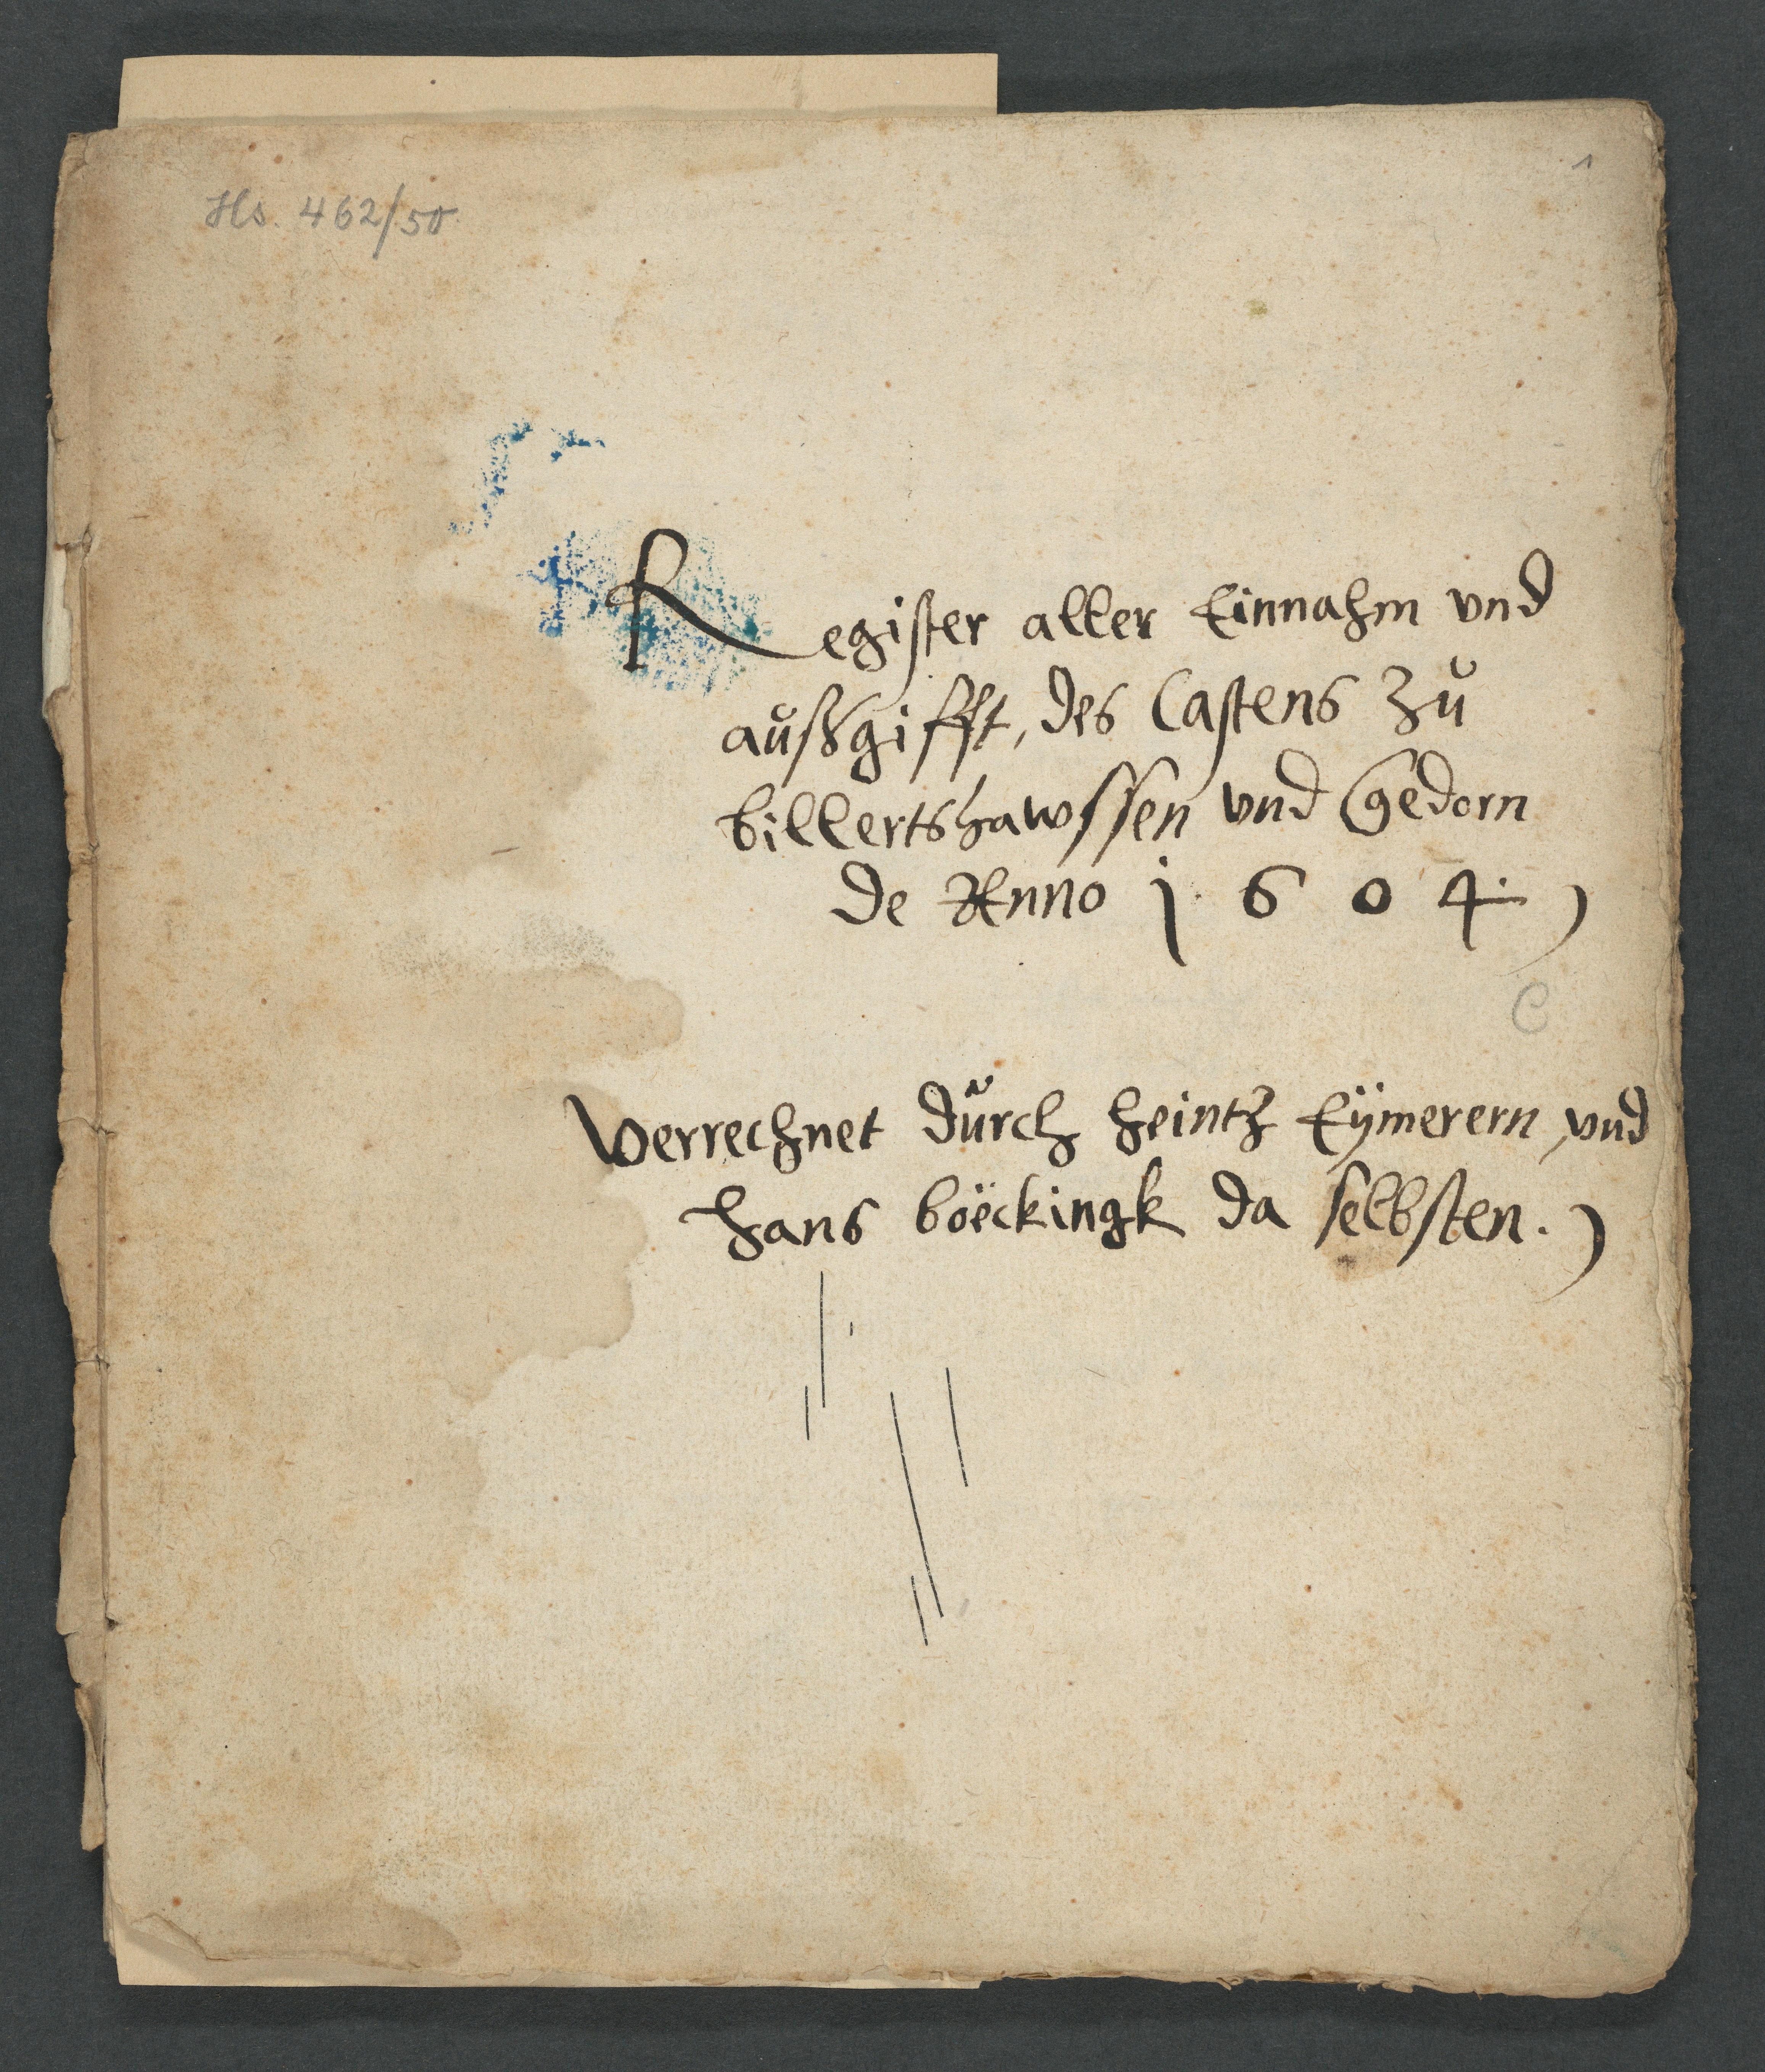 Hs. 462/50
1
Register aller Einnahm vnd
außgifft, des Castens Zu
billertshawssen vnd Gedorn
de Anno 1604
C
Verrechnet durch heintz Eÿmerern vnd
Hans böeckingk da selbsten.